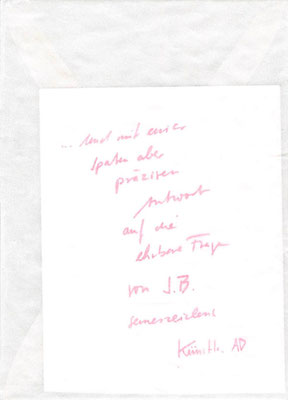 ... und mit einer
späten aber
präzisen
Antwort
auf die
erhabene Frage
von J.B.
seinerzeit
Künstl. AD